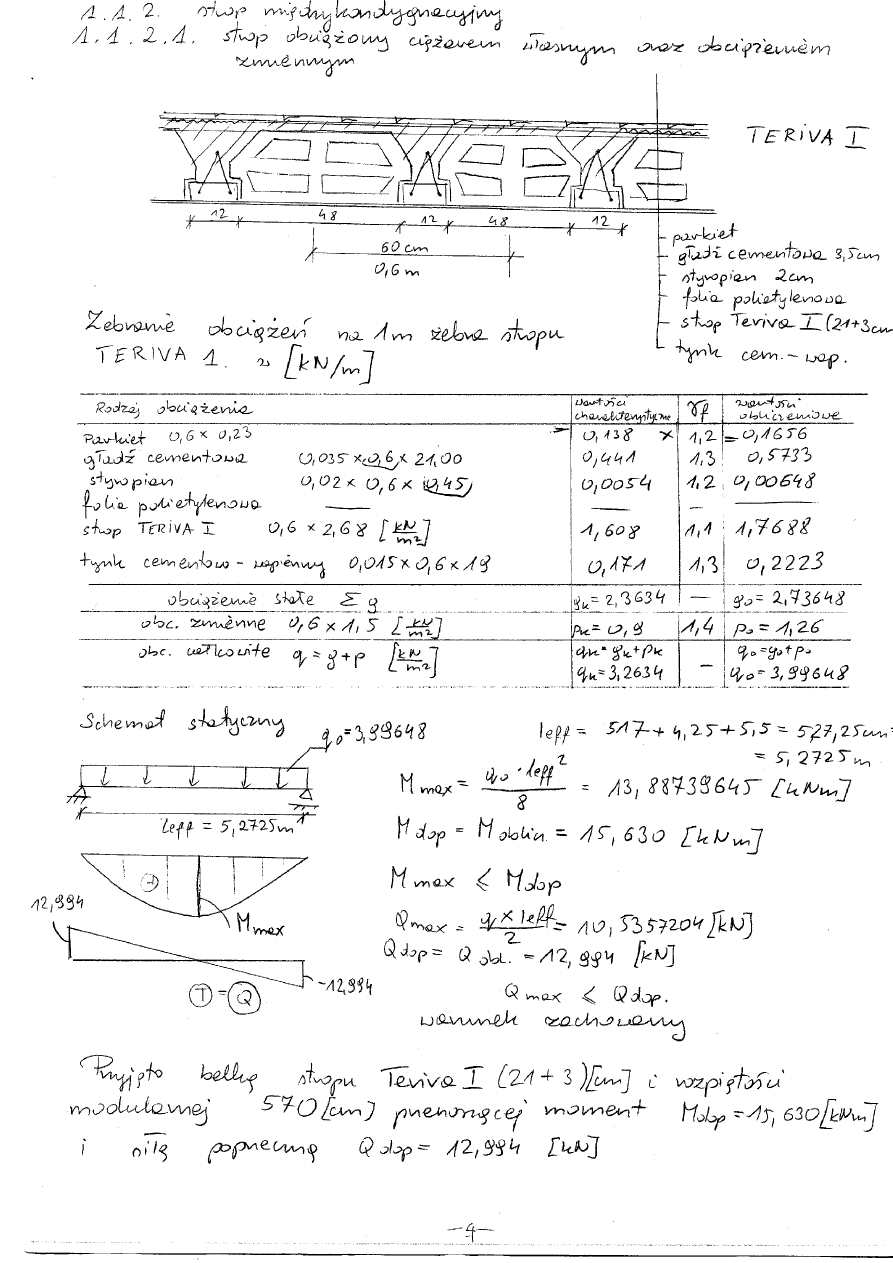 1.1.2. strop międzykondygnacyjny
1.1.2.1. strop obciążony ciężarem własnym oraz obciążeniem
zmiennym
TERIVA I
12 48 12 48 12
60 cm
0,6 m
parkiet
gładź cementowa 3,5cm
styropian 2cm
folia polietylenowa
strop Teriva I (21+3cm
tynk cem.-wap.
Zebranie obciążeń na 1m żebra stropu
TERIVA 1. w [kN/m]
Rodzaj obciążenia wartości charakterystyczne γf wartości obliczeniowe
parkiet 0,6 × 0,23 0,138 × 1,2 = 0,1656
gładź cementowa 0,035 × 0,6 × 21,00 0,441 1,3 0,5733
styropian 0,02 × 0,6 × 0,45 0,0054 1,2 0,00648
folia polietylenowa — — — —
strop TERIVA I 0,6 × 2,68 [kN/m2] 1,608 1,1 1,7688
tynk cementowo-wapienny 0,015 × 0,6 × 19 0,171 1,3 0,2223
obciążenie stałe Σ g gk = 2,3634 — go = 2,73648
obc. zmienne 0,6 × 1,5 [kN/m2] pk = 0,9 1,4 po = 1,26
obc. całkowite q = g + p [kN/m2] qk = gk + pk — qo = go + po
qk = 3,2634 qo = 3,99648
Schemat statyczny
qo = 3,99648
leff = 517 + 4,25 + 5,5 = 527,25cm =
= 5,2725m
Mmax = qo · leff² / 8 = 13,88739645 [kNm]
leff = 5,2725m
Mdop = Moblicz. = 15,630 [kNm]
Mmax ≤ Mdop
Mmax
12,994
Qmax = q × leff / 2 = 10,5357204 [kN]
Qdop = Qobl. = 12,994 [kN]
-12,994
T = Q
Qmax ≤ Qdop.
warunek zachowany
Przyjęto belkę stropu Teriva I (21+3) [cm] i rozpiętości
modularnej 570 [cm] przenoszącej moment Mdop = 15,630 [kNm]
i siłę poprzeczną Qdop = 12,994 [kN]
-4-